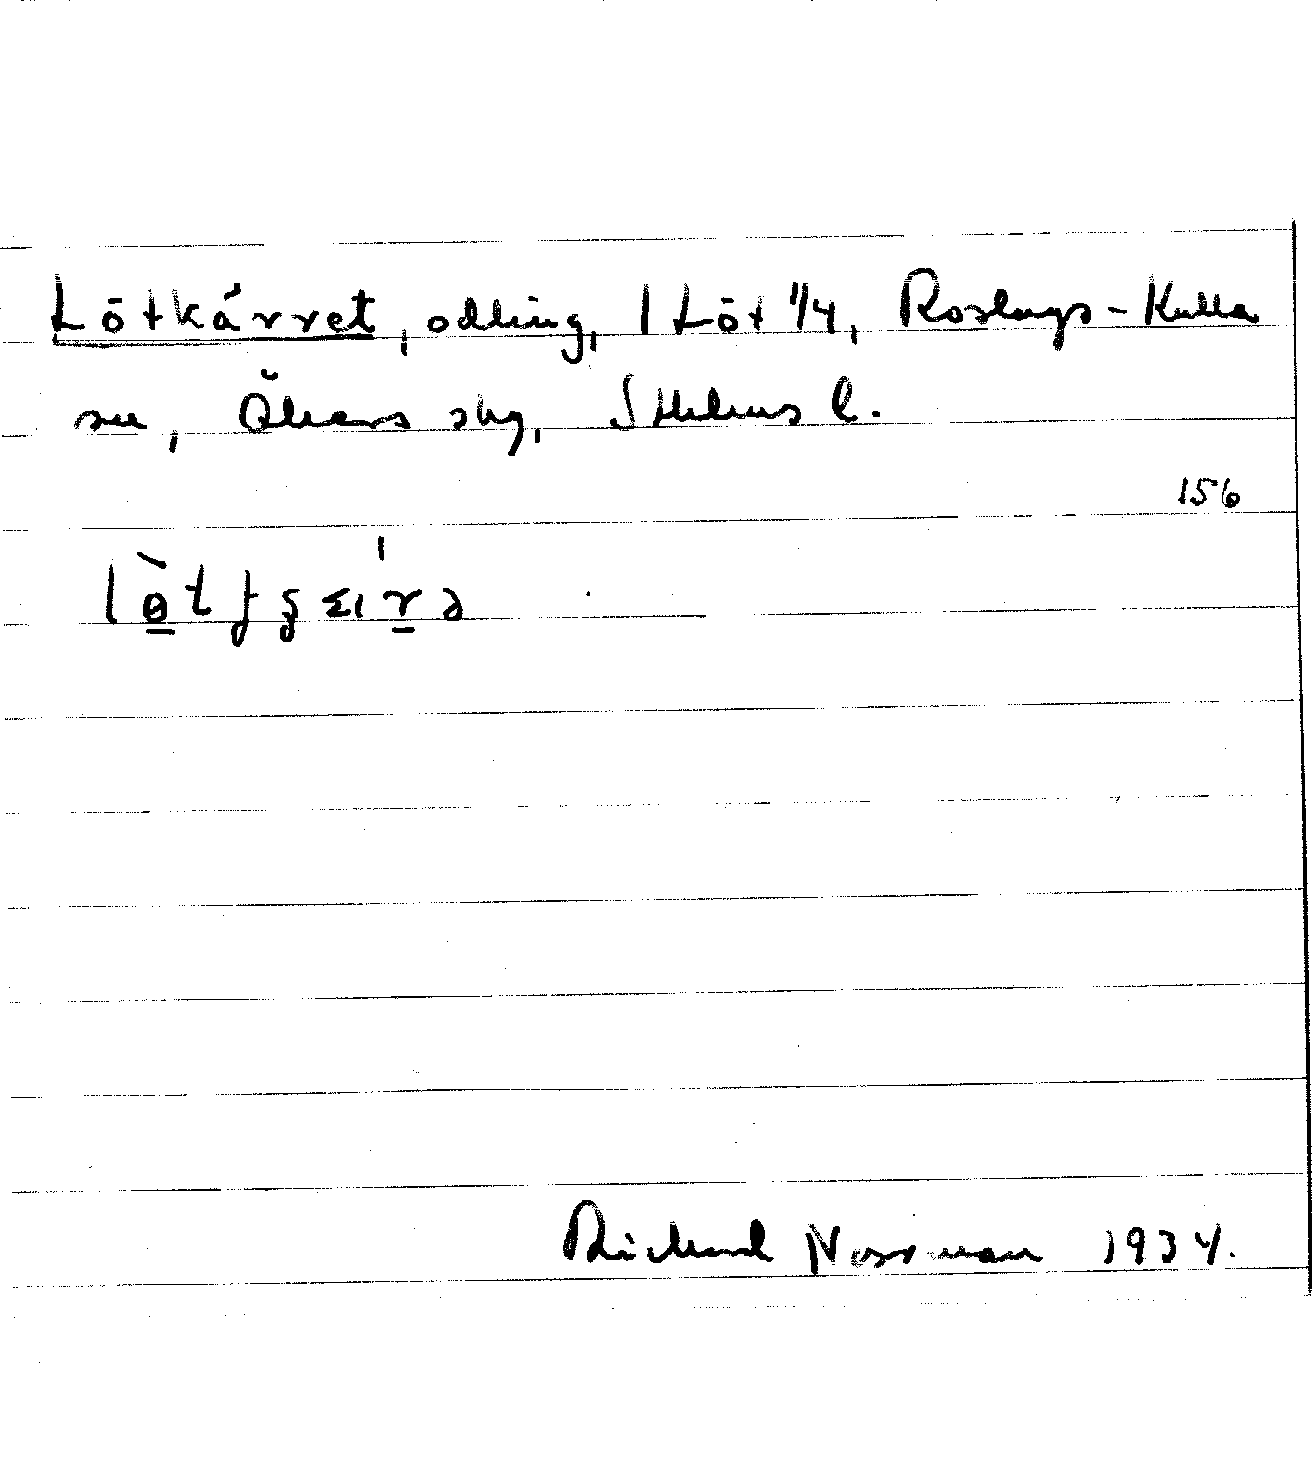 Lötkärret, odling, 1 Löt 1/4, Roslags-Kulla
sn, Åkers skg, Sthlms l.
156
Rickard Norrman 1934.